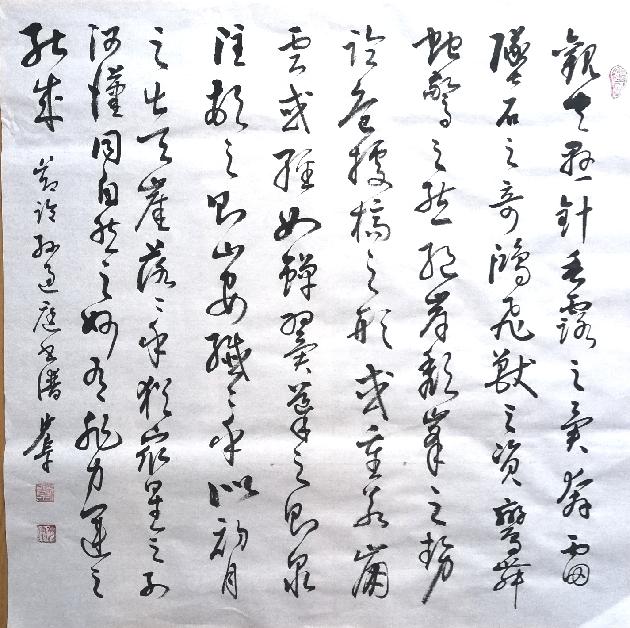 觀夫懸針垂露之異奔雷
墜石之奇鴻飛獸之資鸞舞
蛇驚之態絕岸頹峯之勢
臨危據槁之形或重若崩
雲或輕如蟬翼導之則泉
注頓之則山安纖〻乎似初月
之出天崖落〻乎猶衆星之列
河漢同自然之妙有非力運之
能成
節臨孫過庭書譜